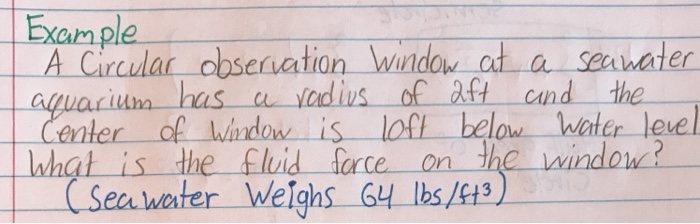 Example
A Circular observation Window at a seawater
aquarium has a radius of 2ft and the
Center of Window is 10ft below Water level
What is the fluid force on the window?
(Seawater Weighs 64 lbs/ft³)